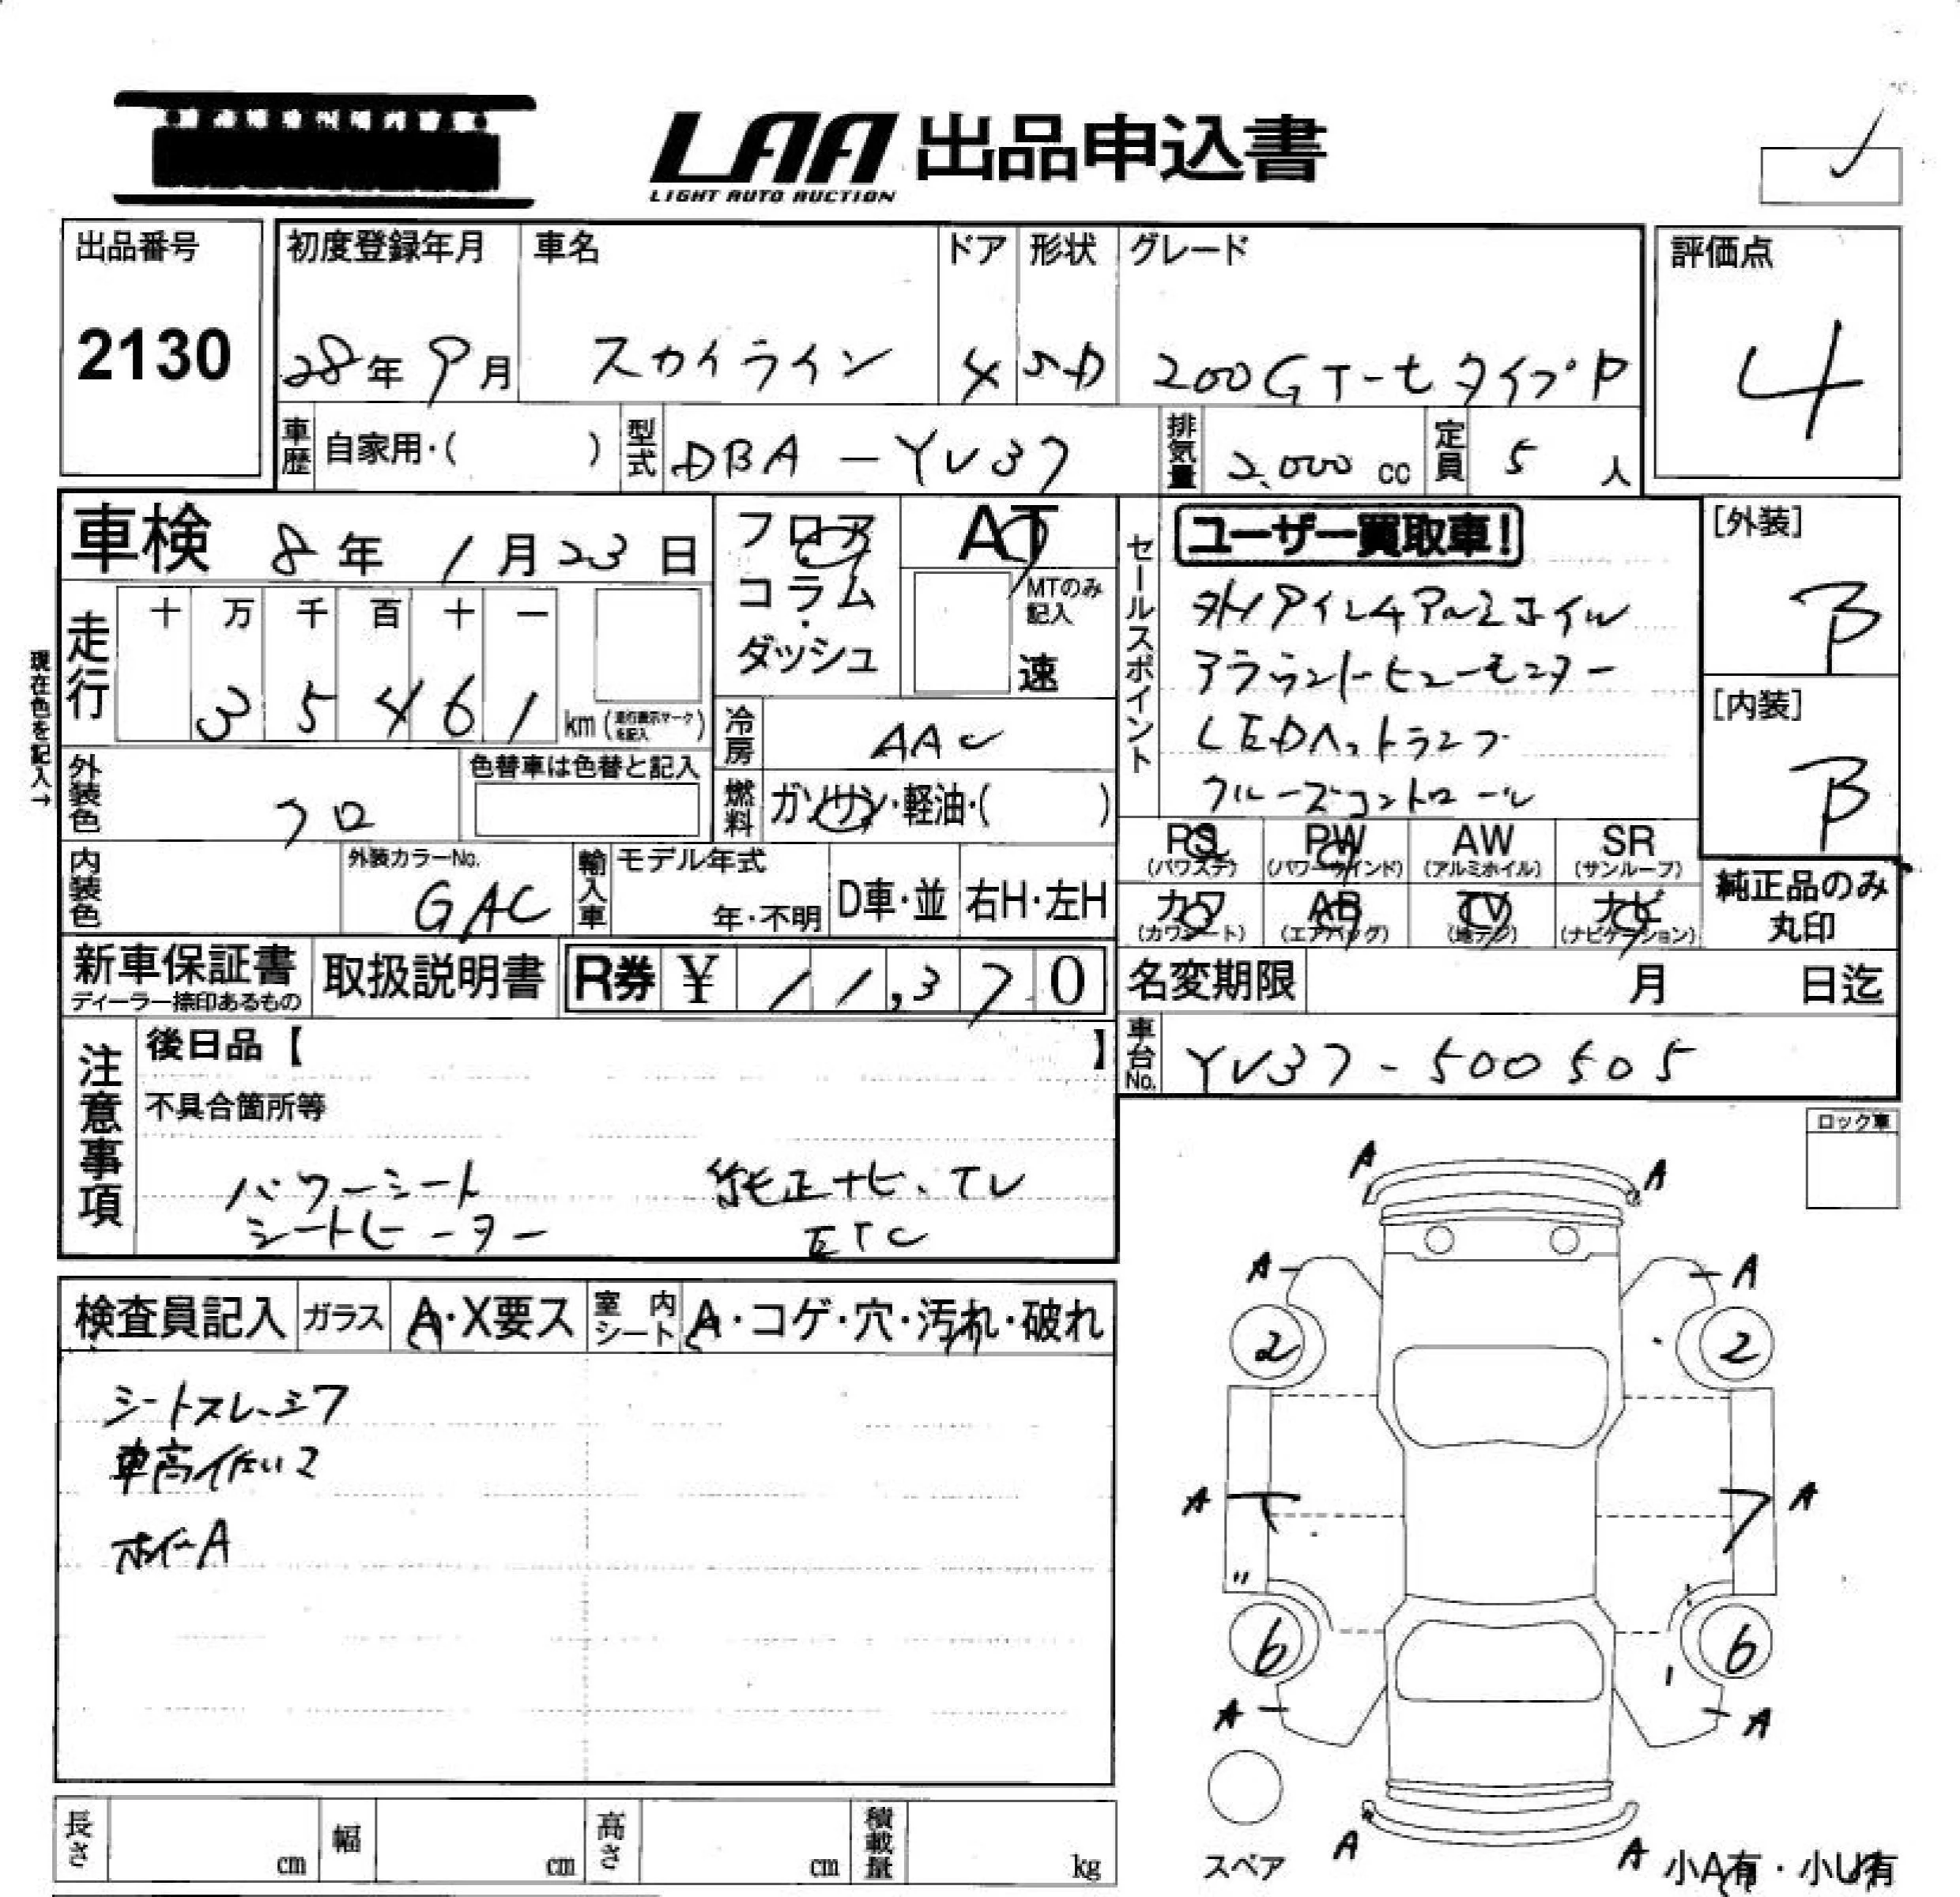 LAA 出品申込書
LIGHT AUTO AUCTION
出品番号
2130
初度登録年月
28年 9月
車名
スカイライン
ドア
4
形状
SD
グレード
200GT-t タイプP
評価点
4
車歴 自家用・( )
型式 DBA-YV37
排気量 2,000 cc
定員 5 人
車検 8年 1月23日
フロア・コラム・ダッシュ
AT
MTのみ記入
速
セールスポイント
ユーザー買取車!
外17アイレ4アルミホイル
アラウンドビューモニター
LEDヘッドランプ
クルーズコントロール
[外装]
B
[内装]
B
現在色を記入→
走行 十 万 千 百 十 一
3 5 4 6 1 km (走行表示マークを記入)
冷房 AAC
燃料 ガソリン・軽油・( )
外装色 クロ
色替車は色替と記入
内装色
外装カラーNo.
GAC
輸入車
モデル年式
年・不明
D車・並
右H・左H
PS (パワステ)
PW (パワーウインド)
AW (アルミホイル)
SR (サンルーフ)
カワ (カワシート)
AB (エアバッグ)
TV (地デジ)
ナビ (ナビゲーション)
純正品のみ丸印
新車保証書
ディーラー捺印あるもの
取扱説明書
R券 ¥ 11,370
名変期限 月 日迄
車台No. YV37-500505
注意事項
後日品【 】
不具合箇所等
パワーシート 純正ナビ、TV
シートヒーター ETC
ロック車
検査員記入
ガラス A・X要ス
室内シート A・コゲ・穴・汚れ・破れ
シートスレ、シワ
車高低い2
ホイールA
A A
A A
2 2
A A
〃
6 6
A A
スペア
A A
小A有・小U有
長さ cm
幅 cm
高さ cm
積載量 kg